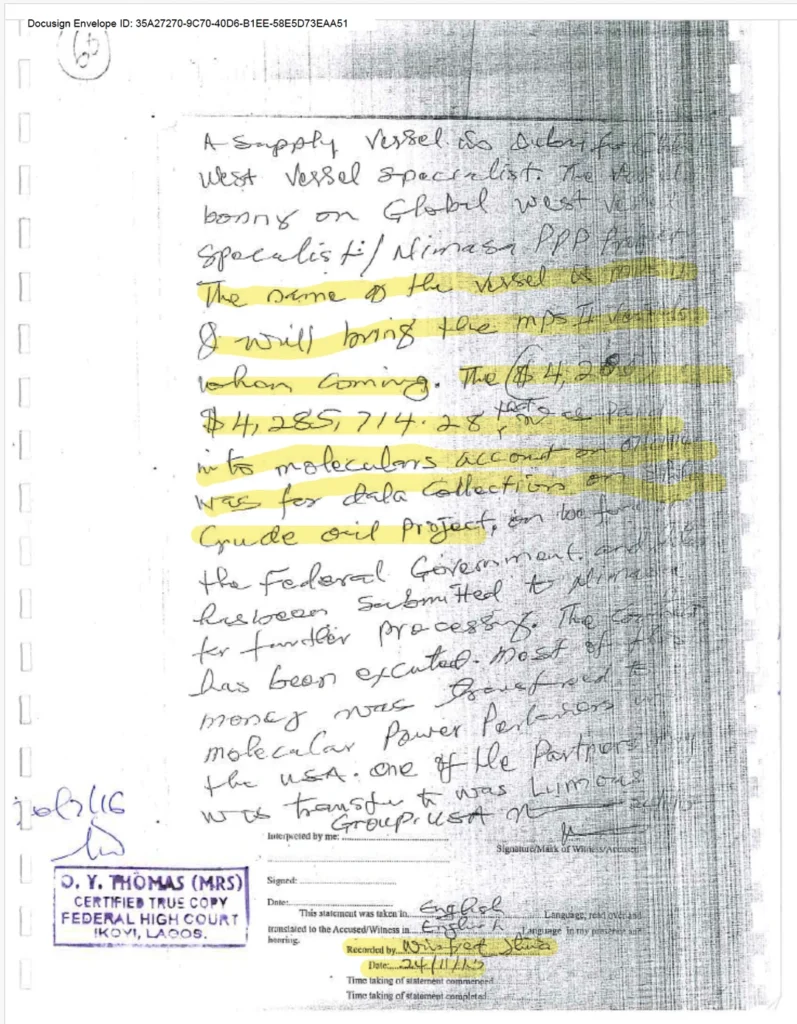 Docusign Envelope ID: 35A27270-9C70-40D6-B1EE-58E5D73EAA51
A supply vessel is
West vessel specialist. The
on Global West
Specalist / Nimasa PPP
The name of the vessel is mps II
I will bring the mps II
when coming. The ($ 4,28
$4,285,714.28 that was paid
into moleculars account on
was for data collection on
Crude oil project, on
the Federal Government. and
has been submitted to Nimasa
for further processing. The
has been excuted. Most of this
money was transferred to
molecular Power Partners in
the USA. one of the Partners
was transfer to was Lumous
Group. USA
20/7/16
Interpreted by me:
Signature/Mark of Witness/Accused
O. Y. THOMAS (MRS)
CERTIFIED TRUE COPY
FEDERAL HIGH COURT
IKOYI, LAGOS.
Signed:
Date:
This statement was taken in English Language, read over and
translated to the Accused/Witness in English Language in my presence and
hearing.
Recorded by
Date: 24/11/15
Time taking of statement commenced
Time taking of statement completed